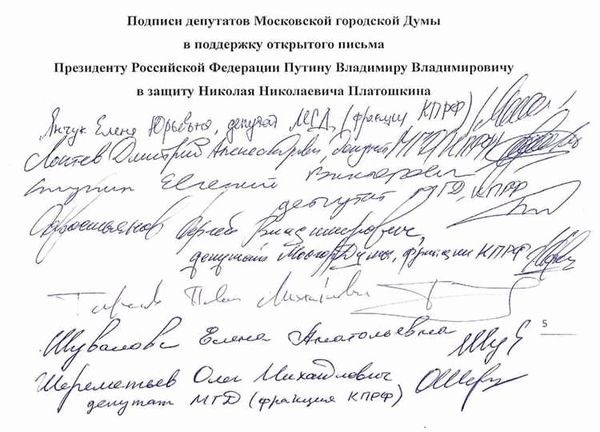 Подписи депутатов Московской городской Думы
в поддержку открытого письма
Президенту Российской Федерации Путину Владимиру Владимировичу
в защиту Николая Николаевича Платошкина
Янчук Елена Юрьевна, депутат МГД, (фракции КПРФ)
Локтев Дмитрий Александрович, депутат МГД КПРФ
Ступин Евгений Викторович
депутат МГД, КПРФ
Савостьянов Сергей Владимирович,
депутат Мосгордумы, фракции КПРФ
Тарасов Павел Михайлович
5
Шувалова Елена Анатольевна
Шереметьев Олег Михайлович
депутат МГД (фракция КПРФ)